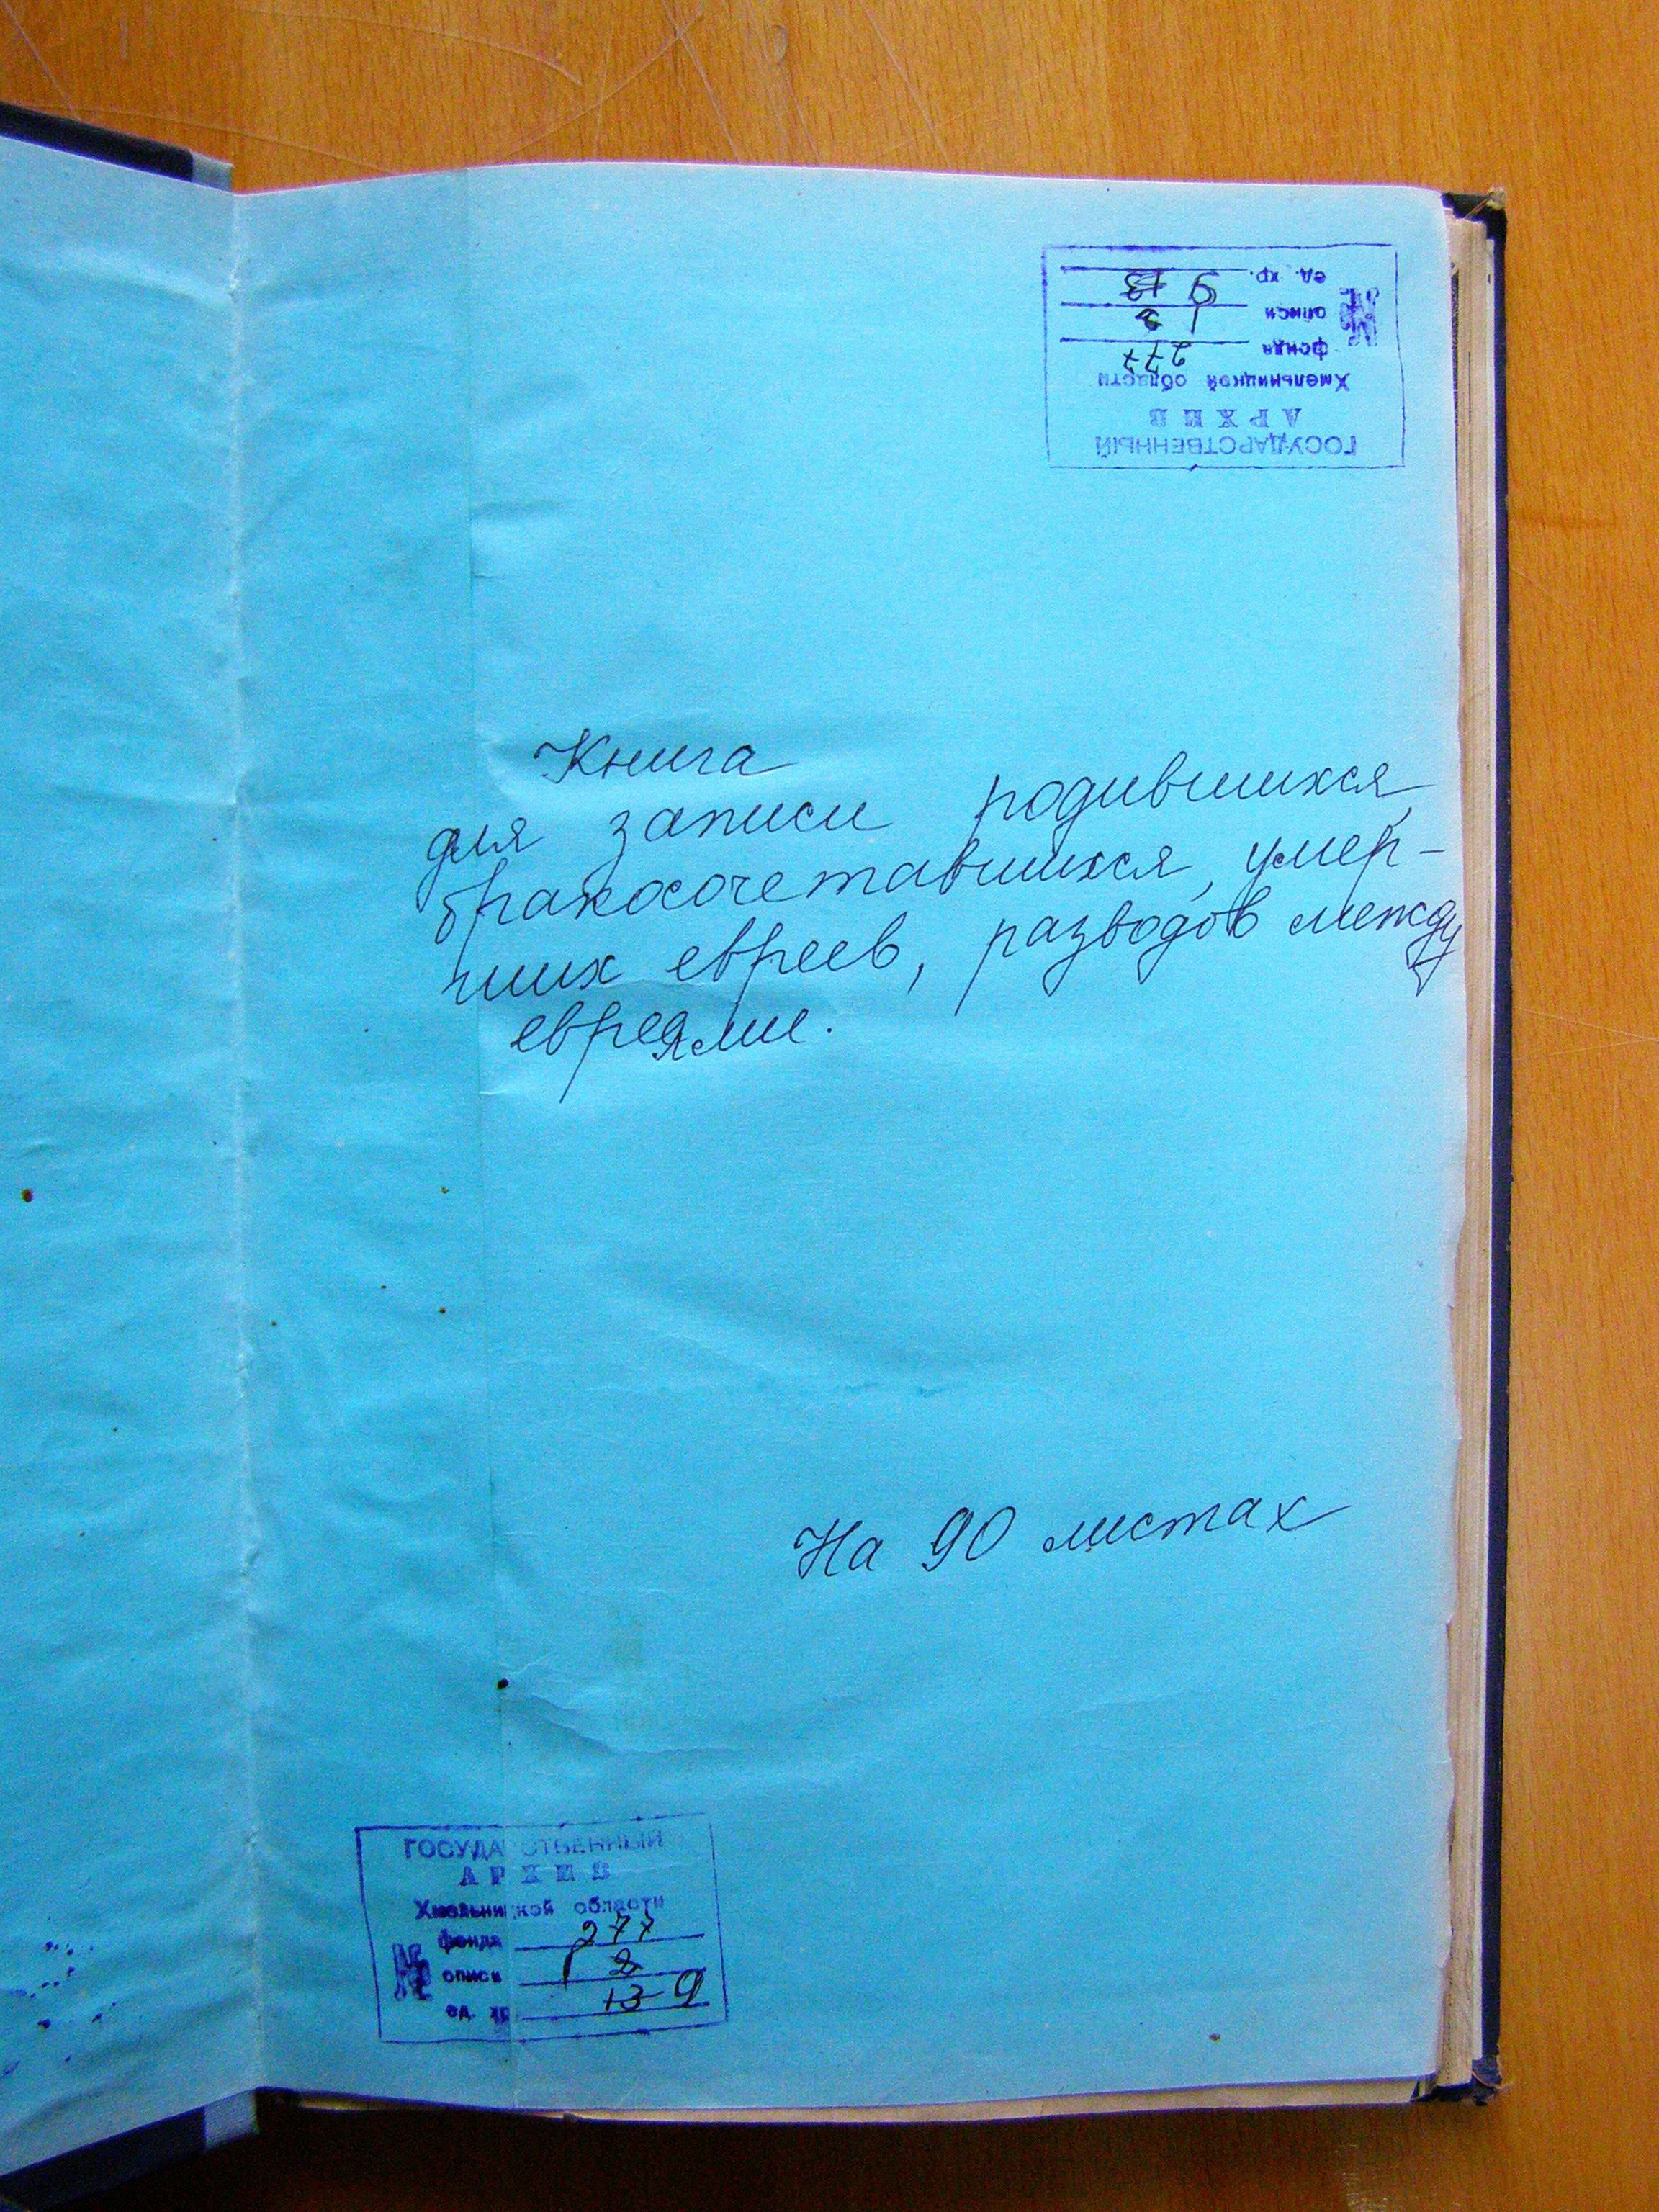 ГОСУДАРСТВЕННЫЙ
АРХИВ
Хмельницкой области
№№
фонда 277
описи 1 2
ед. хр. 9 13
Книга
для записи родившихся,
бракосочетавшихся, умер-
ших евреев, разводов между
евреями.
На 90 листах
ГОСУДАРСТВЕННЫЙ
АРХИВ
Хмельницкой области
№№
фонда 277
описи 1 2
ед. хр 13 9